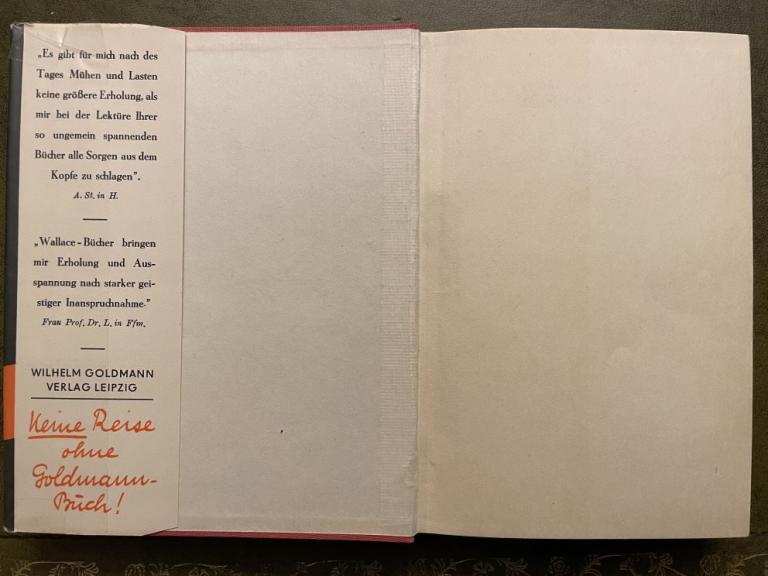 „Es gibt für mich nach des
Tages Mühen und Lasten
keine größere Erholung, als
mir bei der Lektüre Ihrer
so ungemein spannenden
Bücher alle Sorgen aus dem
Kopfe zu schlagen”.
A. St. in H.
„Wallace-Bücher bringen
mir Erholung und Aus-
spannung nach starker gei-
stiger Inanspruchnahme.”
Frau Prof. Dr. L. in Ffm.
WILHELM GOLDMANN
VERLAG LEIPZIG
Keine Reise
ohne
Goldmann-
Buch!